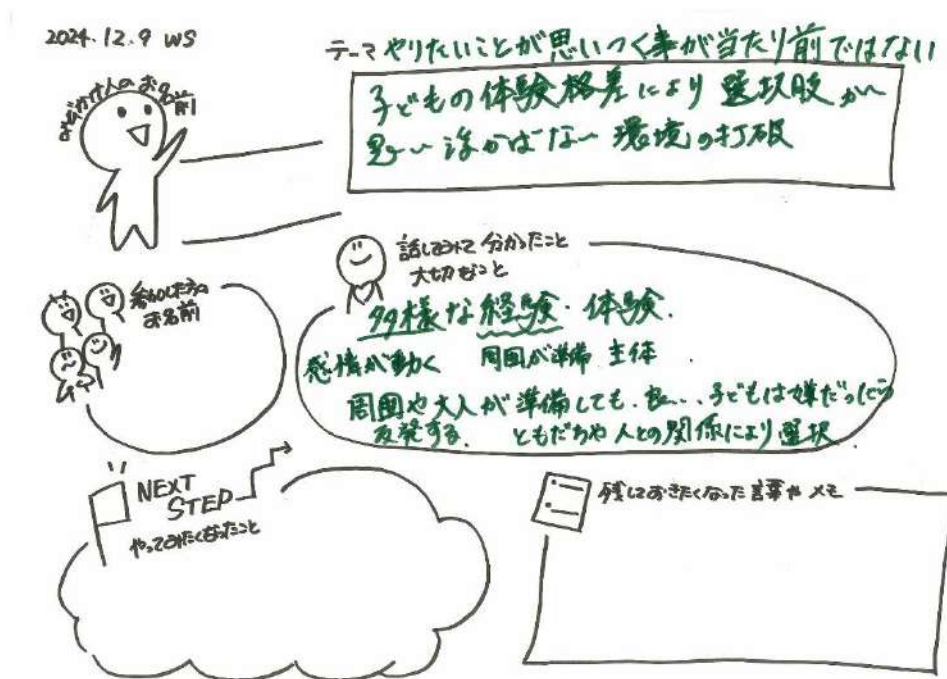 2024.12.9 WS
テーマ やりたいことが思いつく事が当たり前ではない
子どもの体験格差により選択肢が
思い浮かばない環境の打破
呼びかけ人のお名前
話してみて分かったこと
大切なこと
参加した方の
お名前
多様な経験・体験.
感情が動く 周囲が準備 主体
周囲や大人が準備しても、良い、子どもは嫌だったら
反発する. ともだちや人との関係により選択
NEXT
STEP
やってみたくなったこと
残しておきたくなった言葉やメモ